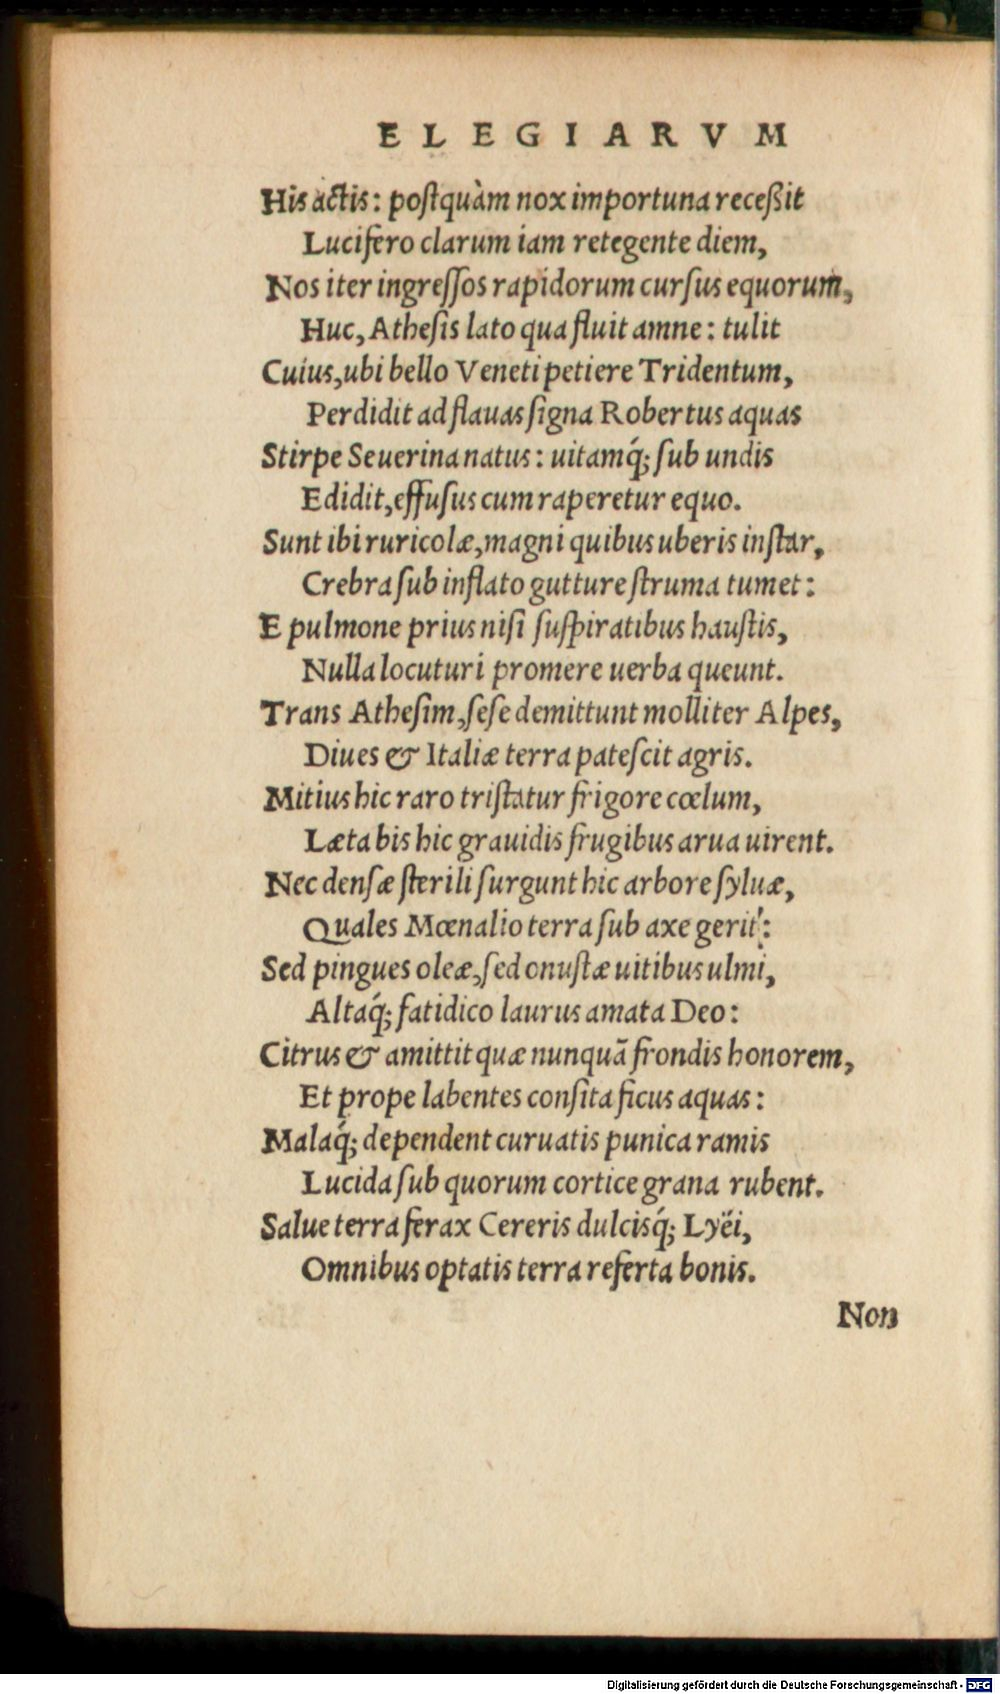 ELEGIARVM
His actis: postquàm nox importuna receßit
Lucifero clarum iam retegente diem,
Nos iter ingressos rapidorum cursus equorum,
Huc, Athesis lato qua fluit amne: tulit
Cuius, ubi bello Veneti petiere Tridentum,
Perdidit ad flauas signa Robertus aquas
Stirpe Seuerina natus: uitamq́; sub undis
Edidit, effusus cum raperetur equo.
Sunt ibi ruricolæ, magni quibus uberis instar,
Crebra sub inflato gutture struma tumet:
E pulmone prius nisi suspiratibus haustis,
Nulla locuturi promere uerba queunt.
Trans Athesim, sese demittunt molliter Alpes,
Diues & Italiæ terra patescit agris.
Mitius hic raro tristatur frigore cœlum,
Læta bis hic grauidis frugibus arua uirent.
Nec densæ sterili surgunt hic arbore syluæ,
Quales Mœnalio terra sub axe gerit:
Sed pingues oleæ, sed onustæ uitibus ulmi,
Altaq́; fatidico laurus amata Deo:
Citrus & amittit quæ nunquã frondis honorem,
Et prope labentes consita ficus aquas:
Malaq́; dependent curuatis punica ramis
Lucida sub quorum cortice grana rubent.
Salue terra ferax Cereris dulcisq́; Lyëi,
Omnibus optatis terra referta bonis.
Non
Digitalisierung gefördert durch die Deutsche Forschungsgemeinschaft - DFG